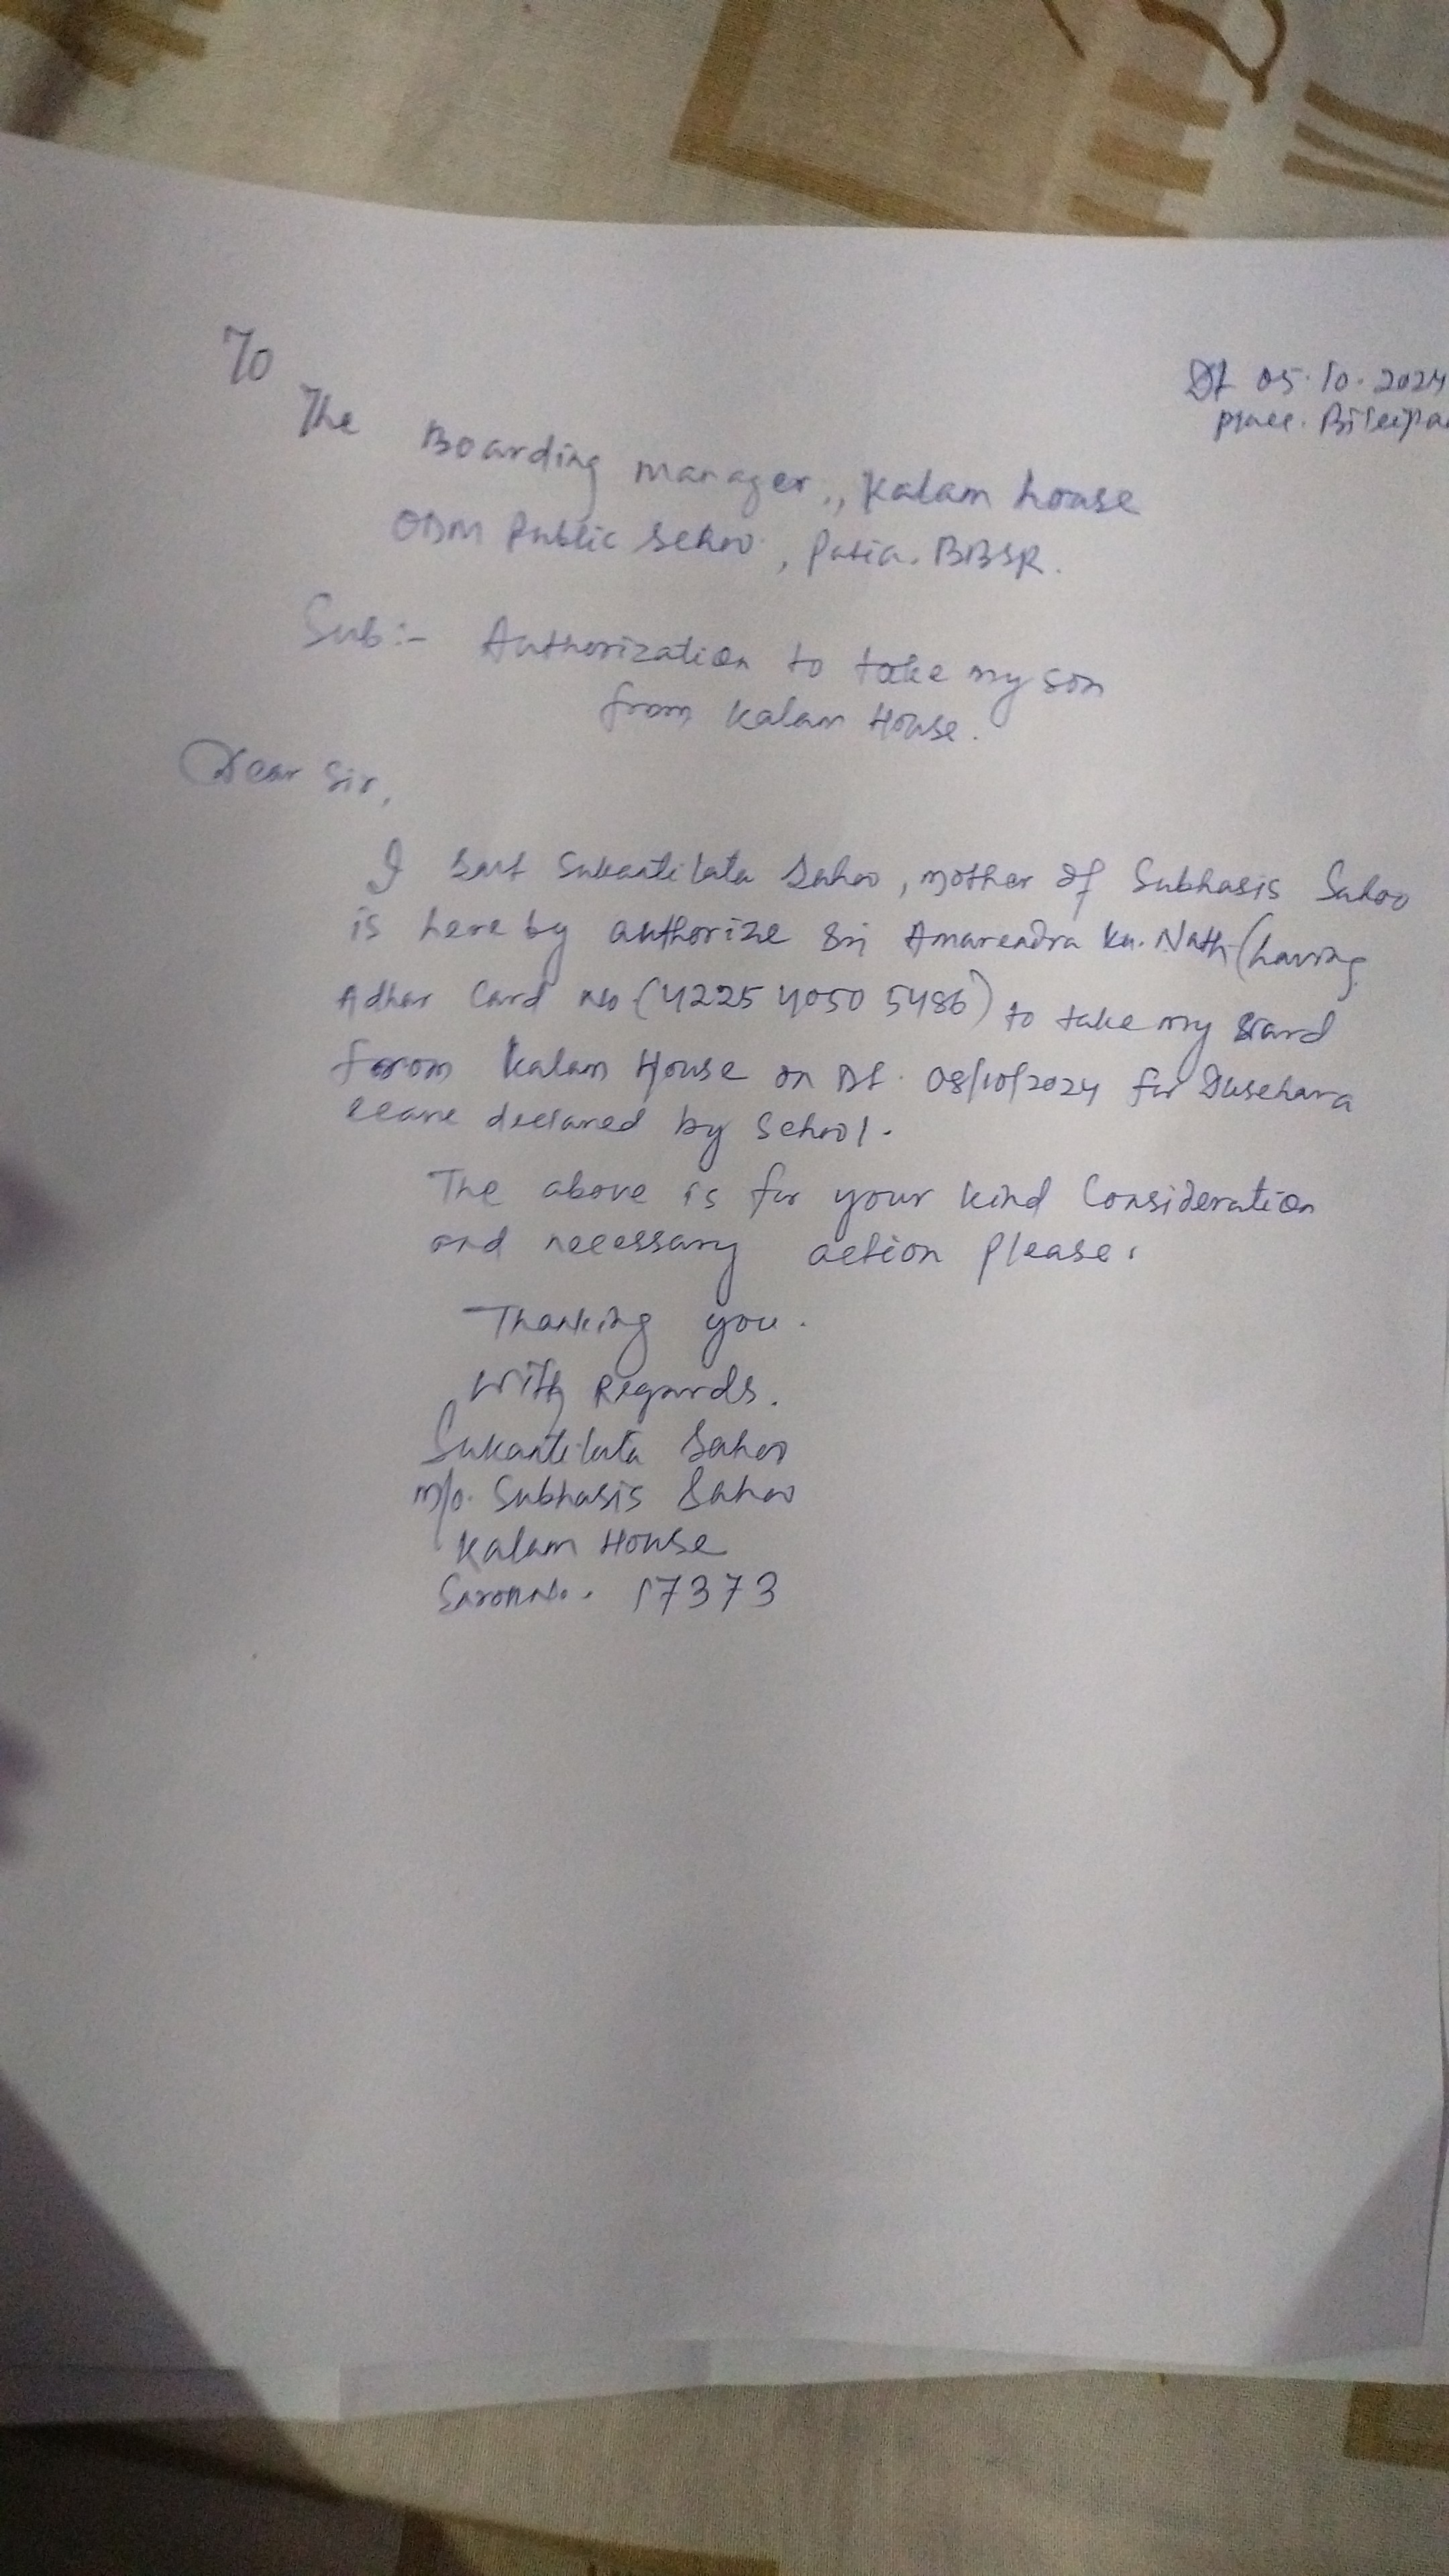 To
Dt 05.10.2024
place.
The Boarding manager, Kalam house
ODM Public Schoo, Patia. BBSR.
Sub:- Authorization to take my son
from Kalam House.
Dear Sir,
I Smt Sukantilata Sahoo, mother of Subhasis Sahoo
is here by authorize Sri Amarendra Ku. Nath (having
Adhar Card No (4225 4050 5486) to take my
from Kalam House on Dt. 08/10/2024 for Dusehara
leave declared by School.
The above is for your kind Consideration
and necessary action Please.
Thanking you.
With Regards.
Sukantilata Sahoo
m/o. Subhasis Sahoo
Kalam House
17373